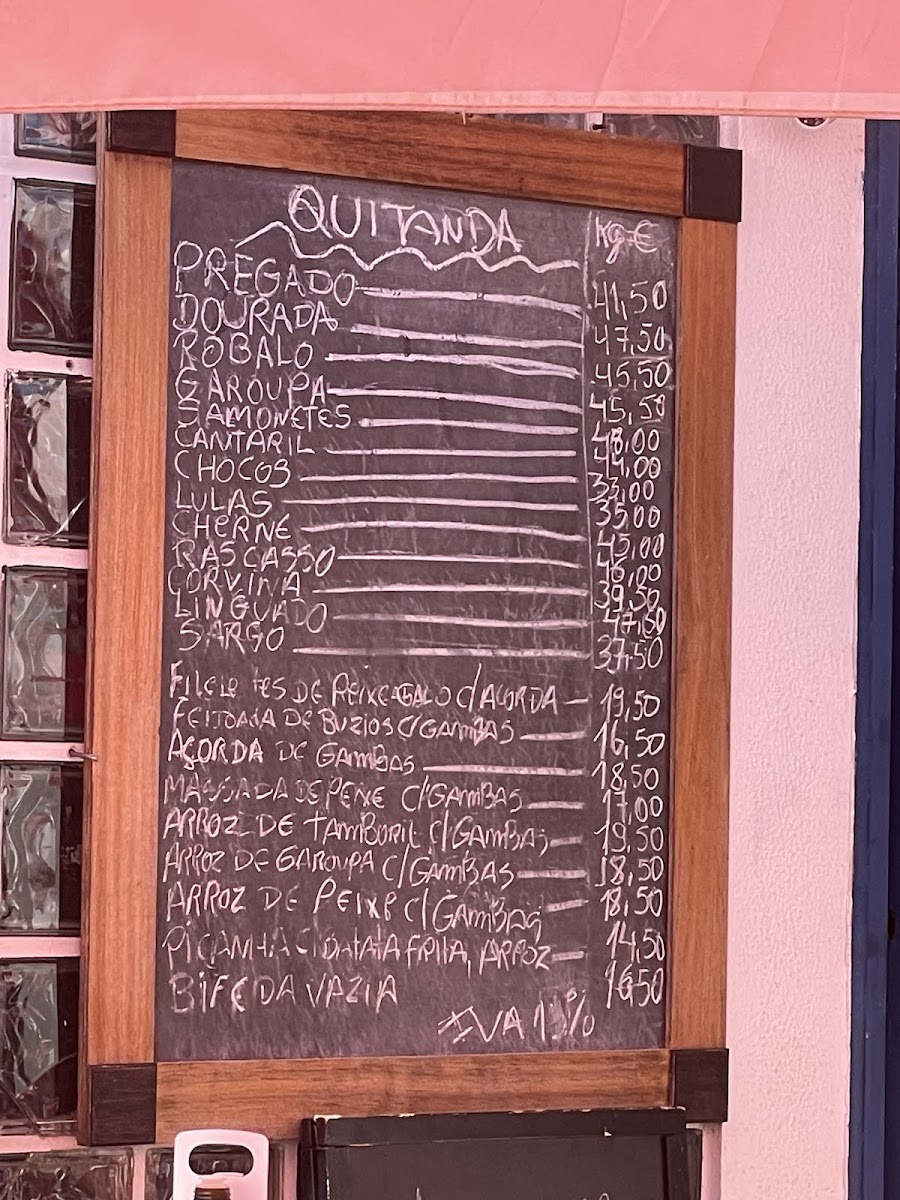 QUITANDA Kg. €
PREGADO 41,50
DOURADA 47,50
ROBALO 45,50
GAROUPA 45,50
SAMONETES 48,00
CANTARIL 44,00
CHOCOS 33,00
LULAS 35,00
CHERNE 45,00
RASCASSO 46,00
CORVINA 39,50
LINGUADO 47,50
SARGO 37,50
DE PEIXE GALO C/AÇORDA 19,50
DE BUZIOS C/GAMBAS 16,50
AÇORDA DE GAMBAS 18,50
MASSADA DE PEIXE C/GAMBAS 17,00
ARROZ DE TAMBORIL C/GAMBAS 19,50
ARROZ DE GAROUPA C/GAMBAS 18,50
ARROZ DE PEIXE C/GAMBAS 18,50
PICANHA C/BATATA FRITA, ARROZ 14,50
BIFE DA VAZIA 16,50
IVA 13%